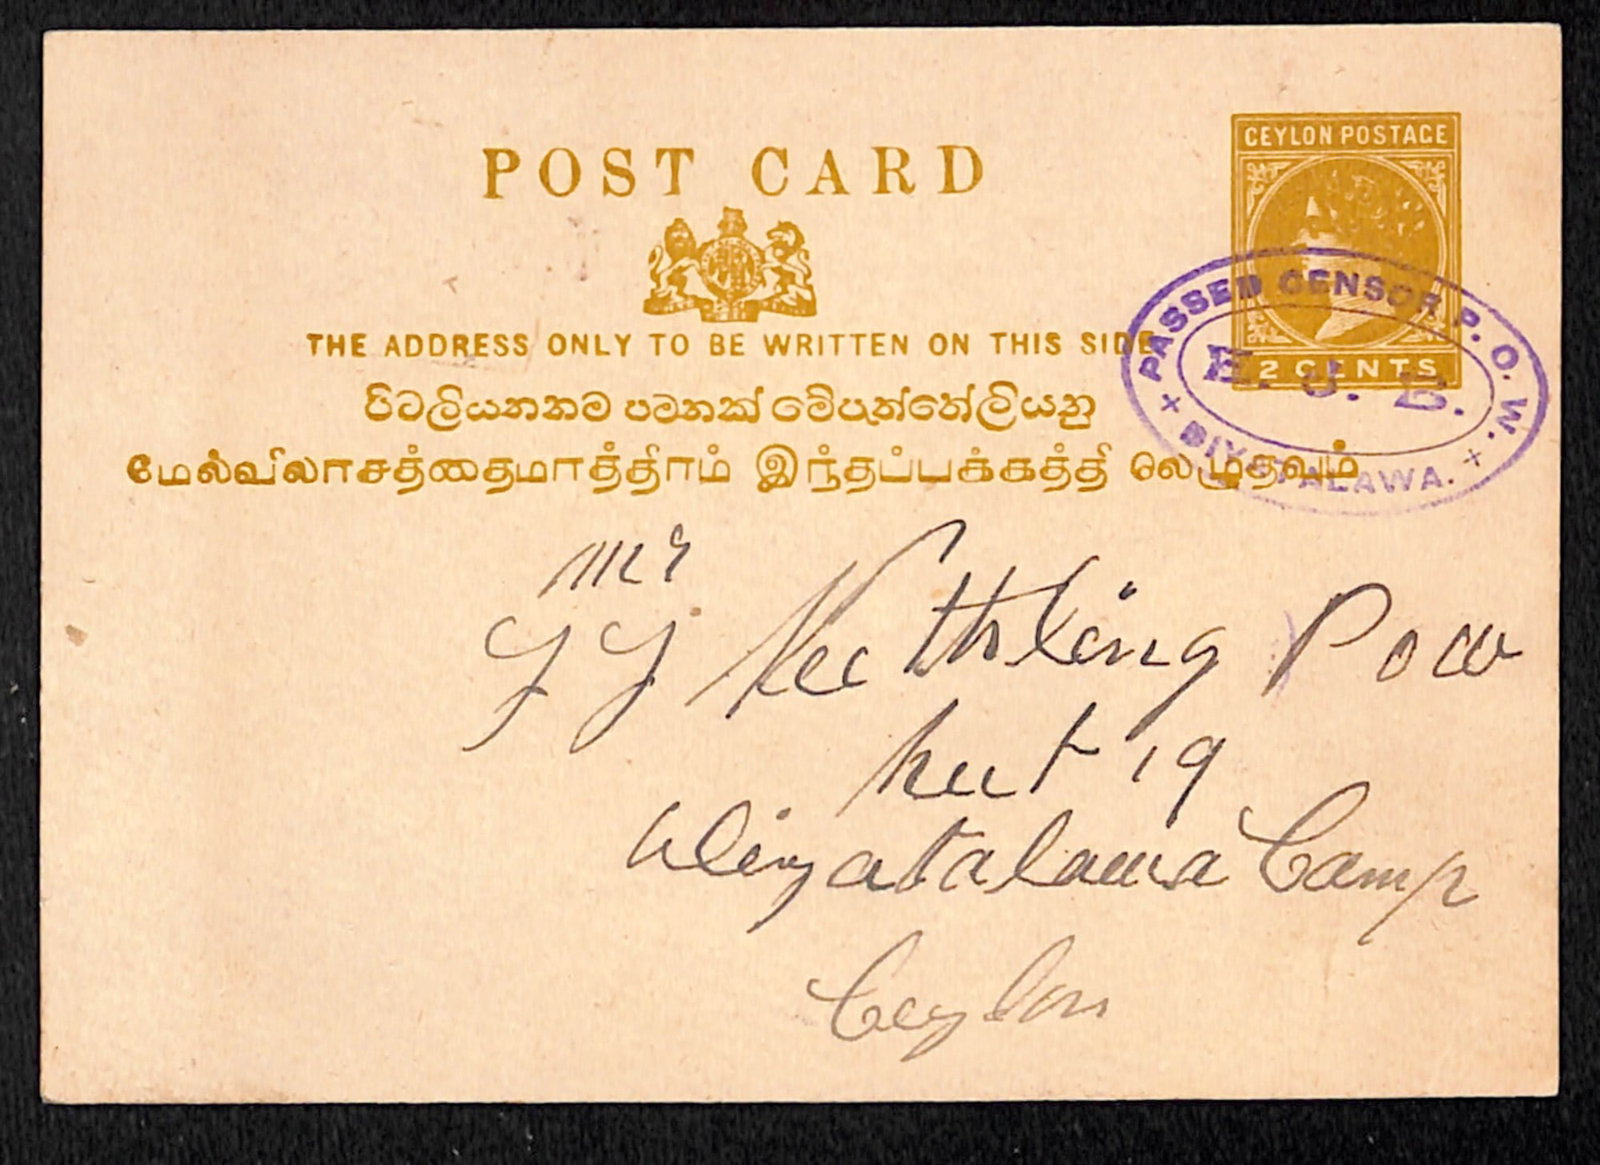 POST CARD
CEYLON POSTAGE
2 CENTS
THE ADDRESS ONLY TO BE WRITTEN ON THIS SIDE
පිටලියනතම පමනක් මේපැත්තේලියනු
மேல்விலாசத்தைமாத்திரம் இந்தப்பக்கத்தி லெழுதவும்
PASSED CENSOR P. O. W.
E. J. B.
DIYATALAWA.
Mr
J J Neethling Pow
hut 19
Camp
Ceylon